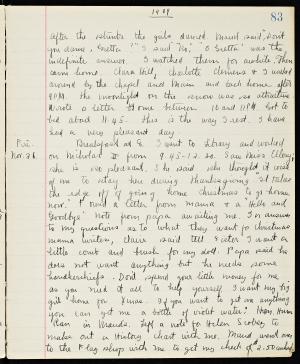 1909
83
After the stunts the gals danced. Maud said, "Don't
you dance, Gretta?" I said "No." "O Gretta" was the
indefinite answer. I watched them for awhile. Then
came home, Clara Hill, Charlotte Clemens & I walked
around by the chapel and Main and back home after
9 P.M. The moonlight on the snow was so attractive
Wrote a letter home between 10 and 11 P.M. Got to
bed about 11.45. This is the way I rest. I have
had a very pleasant day.
Fri. Breakfast at 8. I went to Library and worked
Nov. 26 on Nicholas II from 9.45-12.20. Saw Miss
she is so pleased. She said she thought it well
of me to stay here during Thanksgiving. "It takes
the edge off of going home Christmas to go home
now." I read a letter from mama & a "Hello and
Goodbye" note from papa awaiting me. In answer
to my questions as to what they want for Christmas
mama writes, Claire said tell Sister I want a
little comb and brush for my doll. Papa said he
does not want anything but he needs some
handkerchiefs. Don't spend your little money for me
as you need it all to help yourself. I want my big
girl home for Xmas. If you want to get me anything
you can get me a bottle of violet water.
Left a note for Helen
make out a History chart with me. Maud went
to the Flag shops with me to get my check of 2.50 cashed